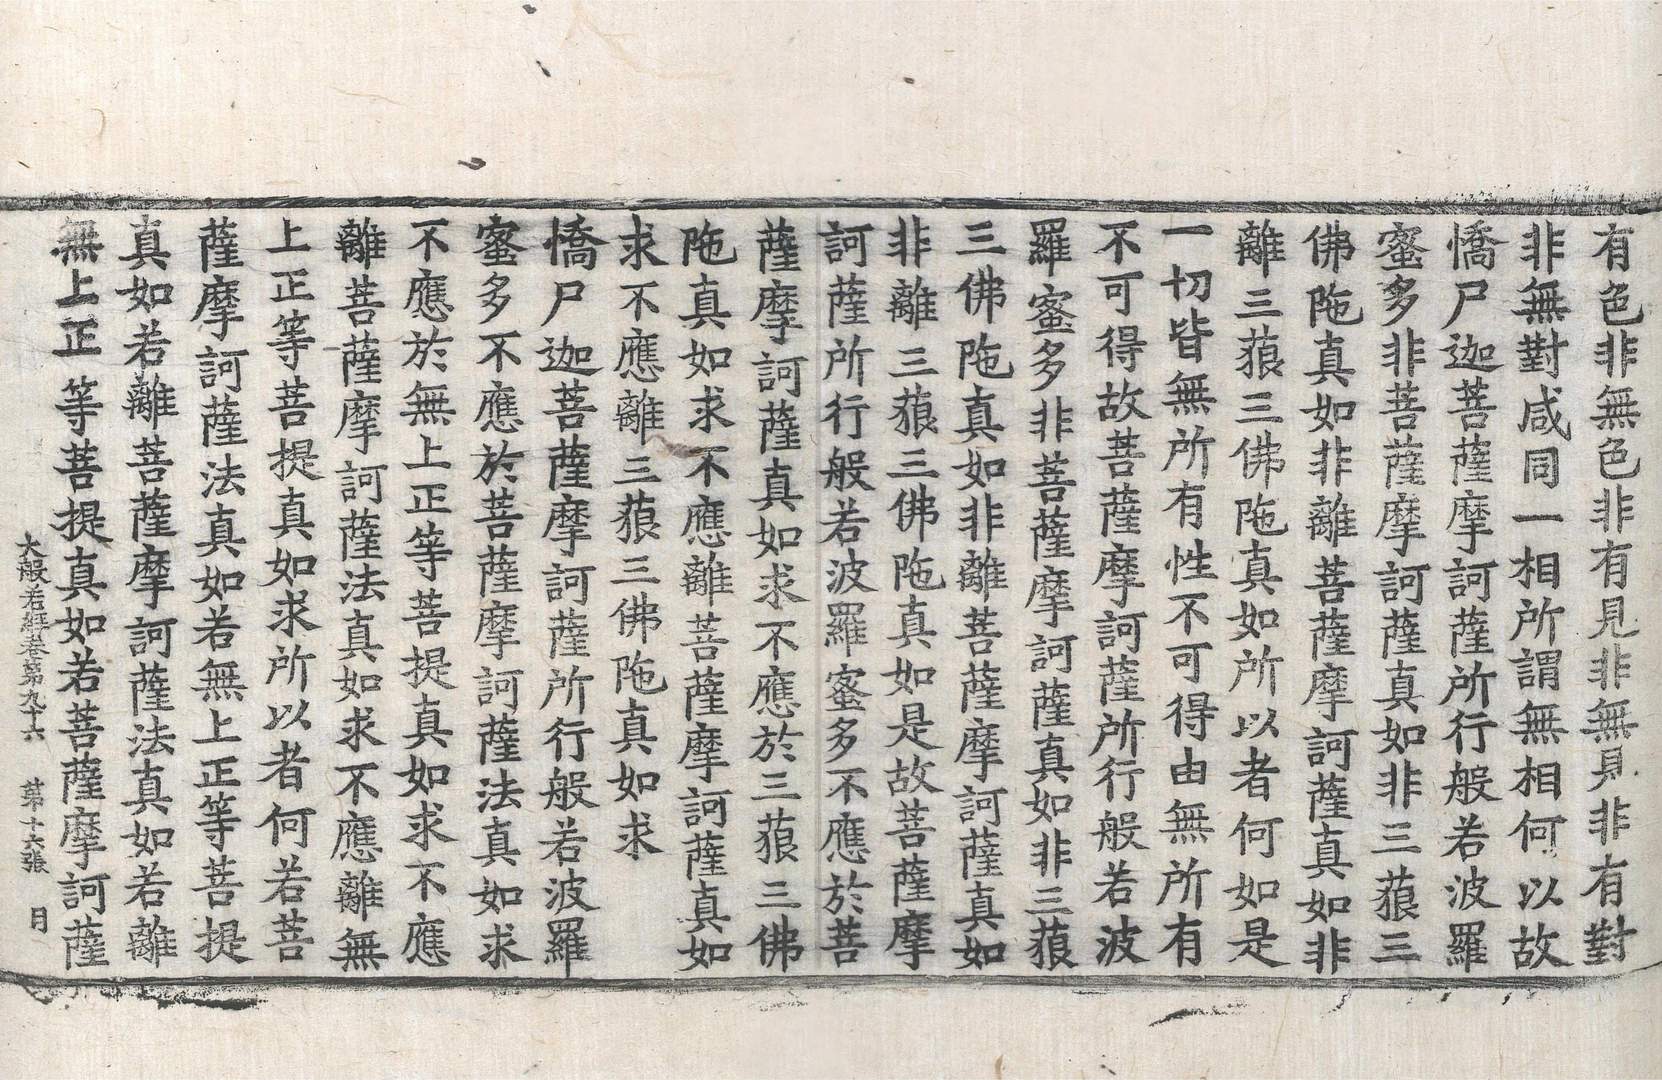 有色非無色非有見非無見非有對
非無對咸同一相所謂無相何以故
憍尸迦菩薩摩訶薩所行般若波羅
蜜多非菩薩摩訶薩真如非三藐三
佛陁真如非離菩薩摩訶薩真如非
離三藐三佛陁真如所以者何如是
一切皆無所有性不可得由無所有
不可得故菩薩摩訶薩所行般若波
羅蜜多非菩薩摩訶薩真如非三藐
三佛陁真如非離菩薩摩訶薩真如
非離三藐三佛陁真如是故菩薩摩
訶薩所行般若波羅蜜多不應於菩
薩摩訶薩真如求不應於三藐三佛
陁真如求不應離菩薩摩訶薩真如
求不應離三藐三佛陁真如求
憍尸迦菩薩摩訶薩所行般若波羅
蜜多不應於菩薩摩訶薩法真如求
不應於無上正等菩提真如求不應
離菩薩摩訶薩法真如求不應離無
上正等菩提真如求所以者何若菩
薩摩訶薩法真如若無上正等菩提
真如若離菩薩摩訶薩法真如若離
無上正等菩提真如若菩薩摩訶薩
大般若經卷第九十六 第十六張 月